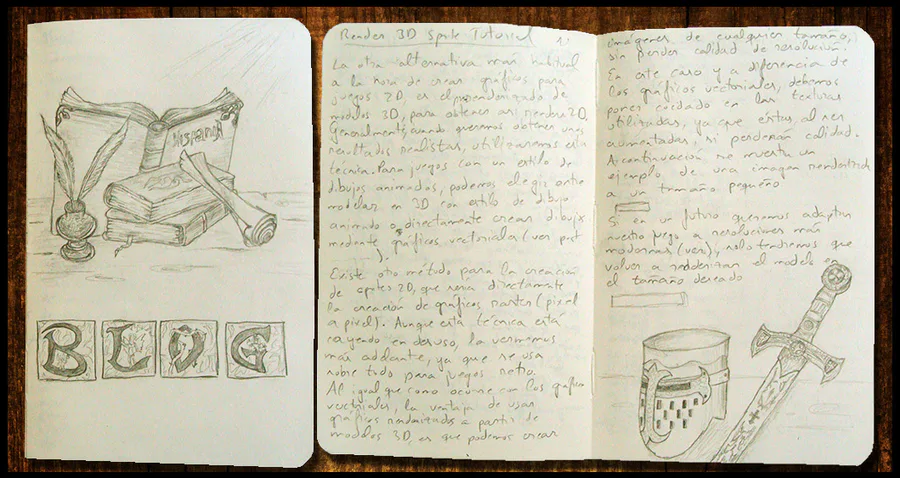 HISPANIA
BLOG
Render 3D Sprite Tutorial
La otra alternativa más habitual
a la hora de crear gráficos para
juegos 2D, es el prerenderizado de
modelos 3D, para obtener así renders 2D.
Generalmente, cuando queremos obtener unos
resultados realistas, utilizaremos esta
técnica. Para juegos con un estilo de
dibujos animados, podemos elegir entre
modelar en 3D con estilo de dibujo
animado o directamente crear dibujos
mediante gráficos vectoriales (ver post
).
Existe otro método para la creación
de sprites 2D, que sería directamente
la creación de gráficos raster (pixel
a pixel). Aunque esta técnica está
cayendo en desuso, la veremos
más adelante, ya que se usa
sobre todo para juegos retro.
Al igual que como ocurre con los gráficos
vectoriales, la ventaja de usar
gráficos renderizados a partir de
modelos 3D, es que podemos crear
imágenes de cualquier tamaño,
sin perder calidad de resolución.
En este caso y a diferencia de
los gráficos vectoriales, debemos
poner cuidado en las texturas
utilizadas, ya que éstas al ser
aumentadas, si perderán calidad.
A continuación se muestra un
ejemplo de una imagen renderizada
a un tamaño pequeño
Si en un futuro queremos adaptar
nuestro juego a resoluciones más
modernas (ver), solo tendremos que
volver a redderizar el modelo en
el tamaño deseado